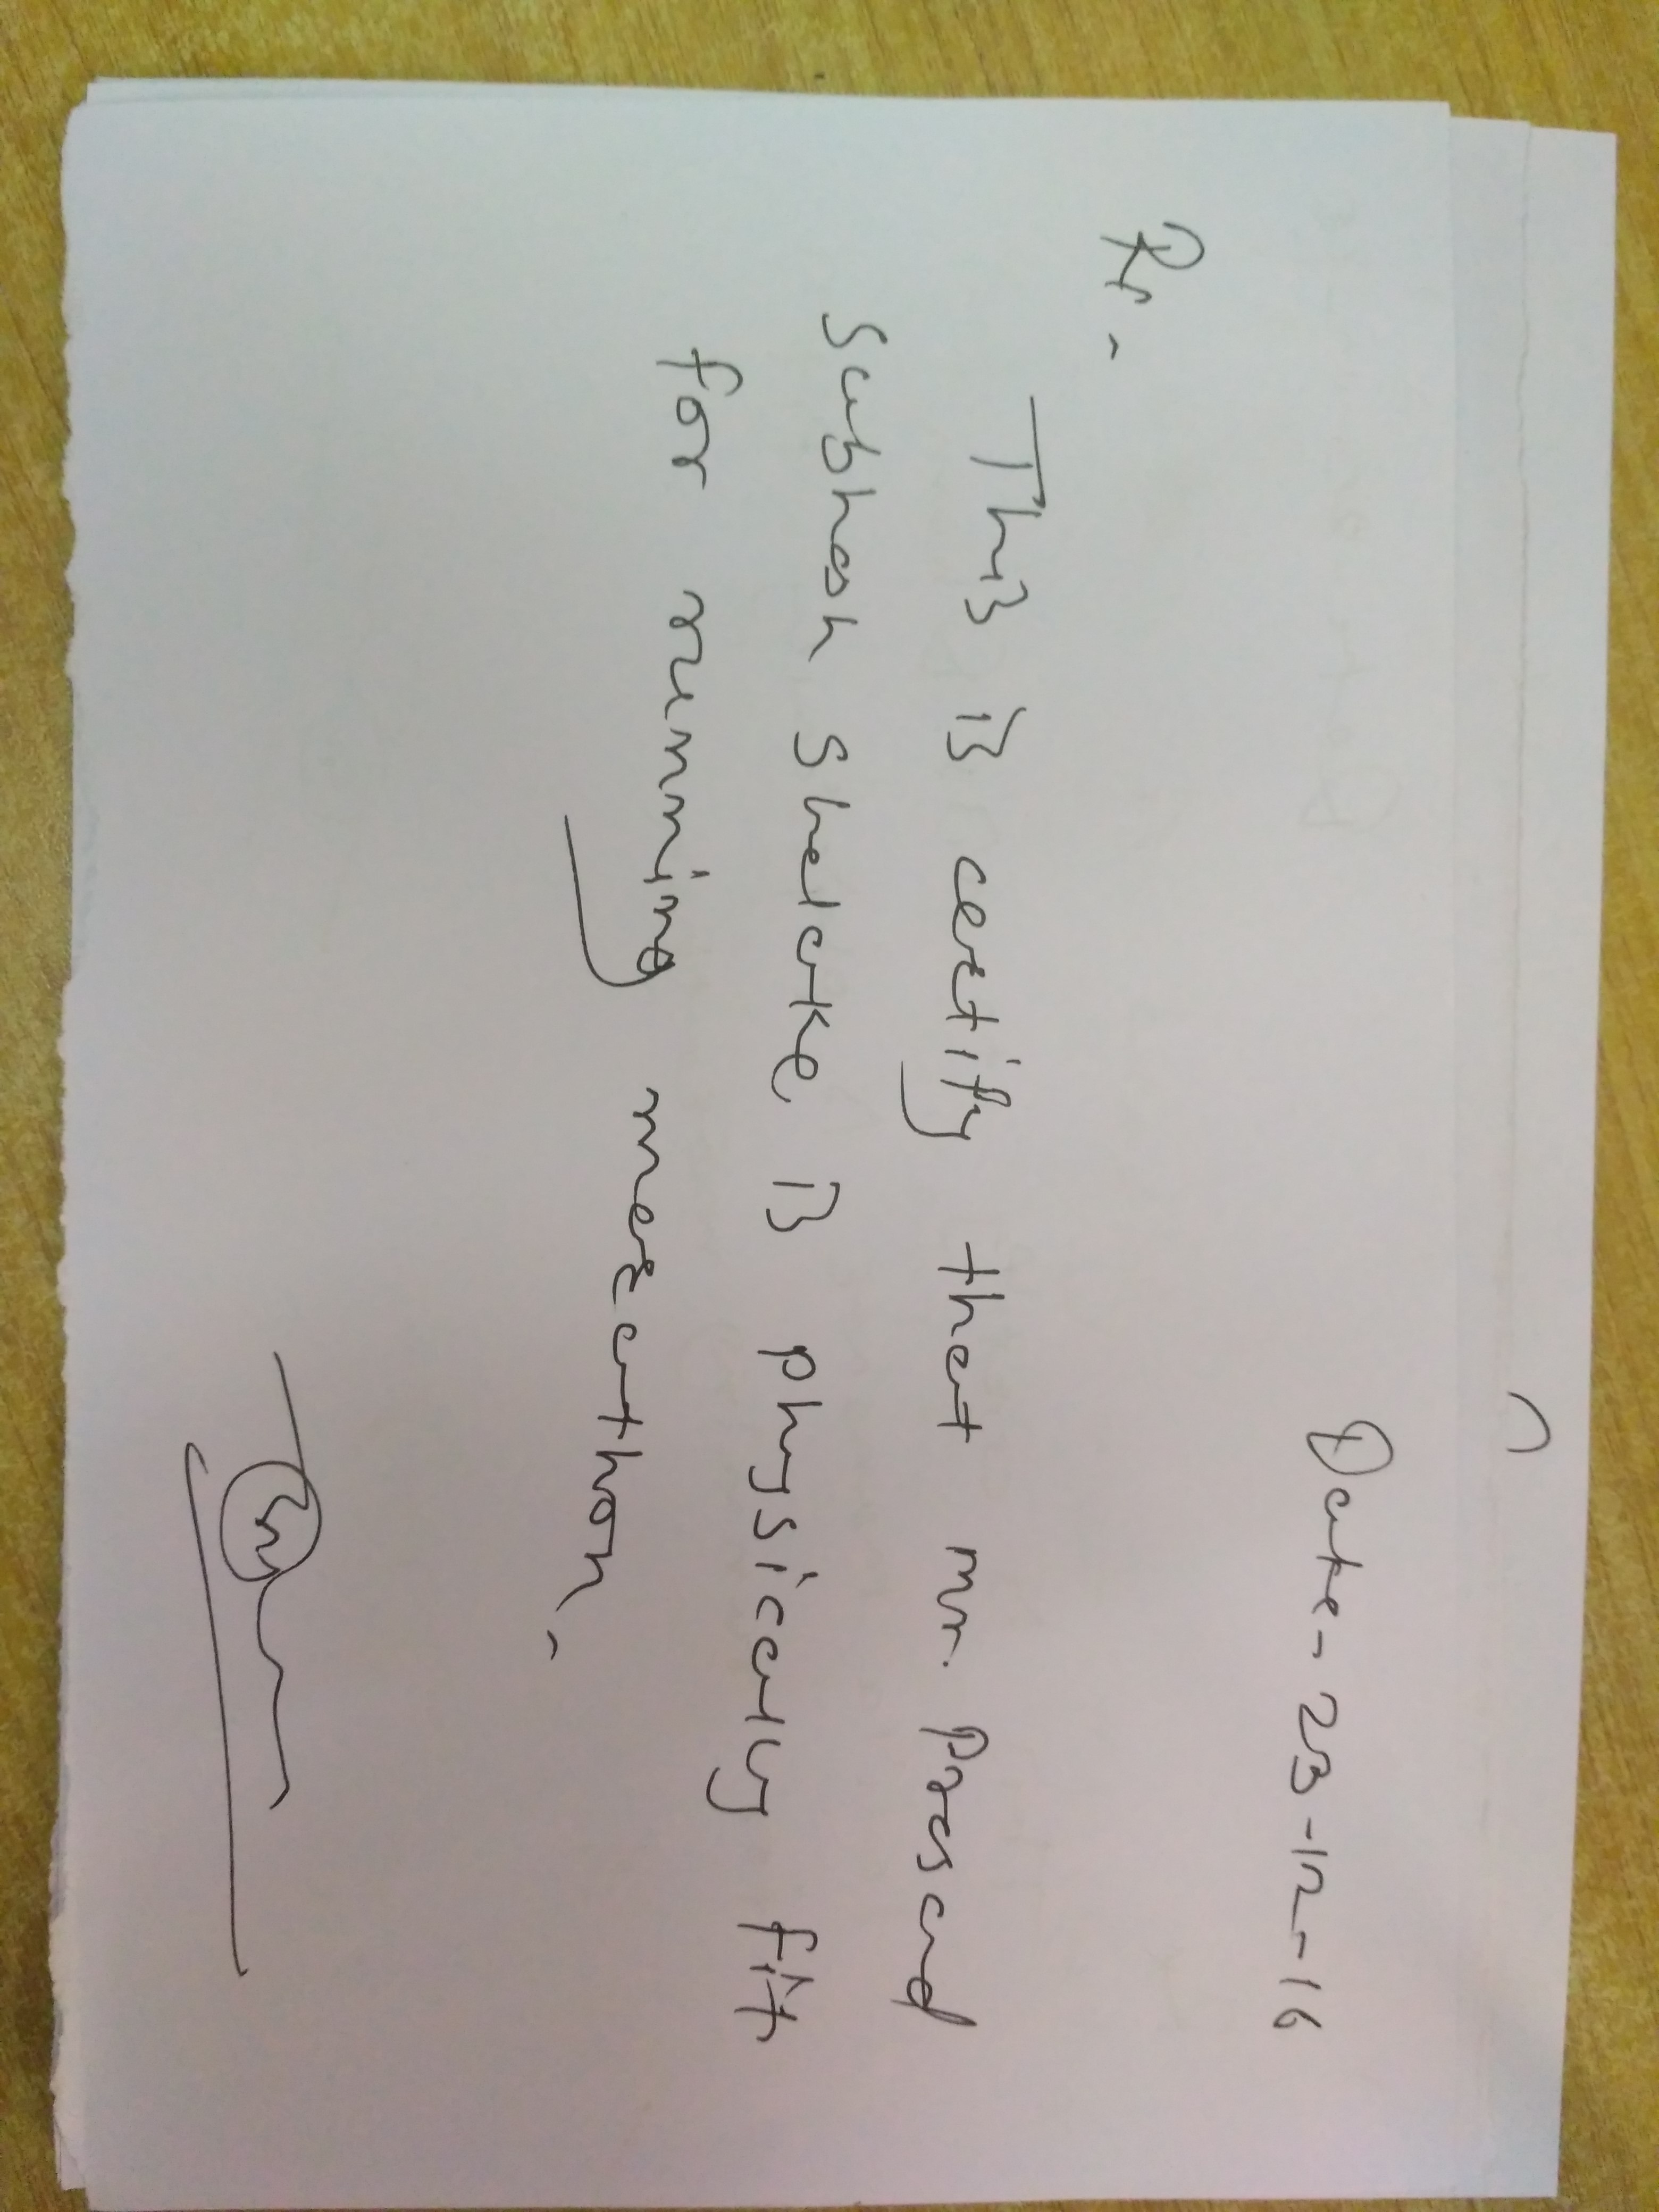 Date - 23-12-16
Rx -
This is certify that mr. Prasad
Subhash Shelake is physically fit
for running marathon.